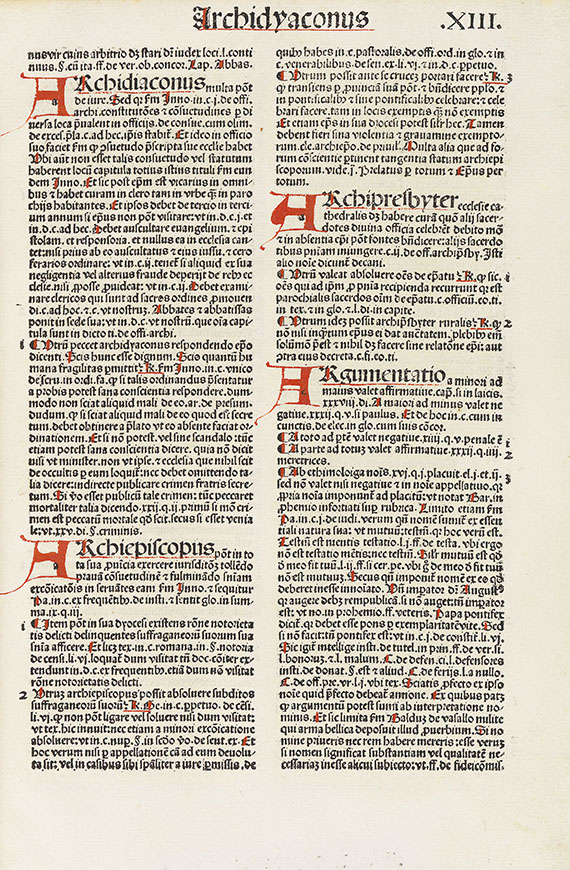 Archidyaconus .XIII.
nus vir cuius arbitrio dʒ stari dñ iudex loci. l. conti
nuus. §. cũ ita. ff. de ver. ob. concor. Lap. Abbas.
ARchidiaconus multa põt
de iure. Sed qʒ fm Inno. in c. j. de offi.
archi. constitutões ⁊ cõsuetudines p di
uersa loca pualent in officijs. de consue. cum olim.
de excef. pla. c. ad hec. ipis stabit. Et ideo in officio
suo faciet fm ꝙ psuetudo pscripta sue ecclie habet
Ubi aũt non esset talis consuetudo vel statutum
haberent locũ capitula totius istius tituli fm eun
dem Inno. Et sic post epm est vicarius in omni-
bus ⁊ habet curam in clero tam in vrbe q̃ in par
chijs habitantes. Et ipsos debet de tercio in terci
um annum si epus non põt visitare: vt in. d. c. j. et
in. d. c. ad hec. Debet auscultare euangelium. ⁊ epi
stolam. et responsoria. et nullus ea in ecclesia can-
tet: nisi prius ab eo auscultatus ⁊ eius iussu. ⁊ cero
ferarios ordinare: vt in c. ij. tenet̃ si aliquid ex sua
negligentia vel alterius fraude deperijt de rebꝰ ec
clesie. nisi posse puideat: vt in c. ij. Debet exami-
nare clericos qui sunt ad sacros ordines pmouen
di. c. ad hoc. ⁊ c. vt nostruʒ. Abbates ⁊ abbatissas
ponit in sede sua: vt in. d. c. vt nostrũ. que oĩa capi-
tula sunt in dicto ti. de offi. archi.
1 ¶ Utrũ peccet archidyaconus respondendo epo
dicenti. Scis hunc esse dignum. Scio quantũ hu
mana fragilitas pmittit ·K· fm Inno. in c. vnico
de scru. in ordi. fa. ꝙ si talis ordinandus psentatur
a probis potest sana conscientia respondere. dum-
modo non sciat aliquid mali de eo. ar. de presum.
dudum. ꝙ si sciat aliquid mali de eo quod est secre
tum. debet obtinere a plato vt eo absente faciat or-
dinationem. Et si nõ potest. vel sine scandalo tũc
etiam potest sana conscientia dicere. quia nõ dicit
nisi vt minister. non vt ipse. ⁊ ecclesia que nihil scit
de occultis p eum loquit̃: nec debet omittendo ta
lia dicere: indirecte publicare crimen fratris secre-
tum. Si vo esset publicũ tale crimen: tũc peccaret
mortaliter talia dicendo. xxij. q. ij. primũ si mõ cri-
men est peccatũ mortale qd scit. secus si esset venia
le: vt. xxv. di. §. criminis.
ARchiepiscopus põt in to
ta sua puincia exercere iurisdictõʒ tollẽdo
prauã cõsuetudinẽ ⁊ fulminãdo sniam
excõicatõis in seruãtes eam fm Inno. ⁊ sequitur
Pa. in. c. ex frequẽtibꝰ. de insti. ⁊ sentit glo. in sum-
ma. ix. q. iij.
1 ¶ Item põt in sua dyocesi existens rõne notorieta
tis delicti delinquentes suffraganeorũ suorum sua
snia afficere. Et licʒ tex. in c. romana. in §. notoria
de censi. li. vj. loquat̃ dum visitat tñ doc. cõiter ex-
tendunt in. d. c. ex frequẽtibꝰ. etiã dum nõ visitat
rõne notorietatis delicti.
2 ¶ Utruʒ archiepiscopus possit absoluere subditos
suffraganeorũ suorũ ·K· Ge. in c. ppetuo. de cẽsi.
li. vj. ꝙ non põt ligare vel soluere nisi dum visitat:
vt tex. hic innuit: nec etiam a minori excõicatione
absoluere: vt in c. nup. §. in scdo vo. de sent. ex. Et
hoc verum nisi p appellationẽ cã ad eum deuolu-
ta sit: vel in casibus sibi spaliter a iure pmissis. de
quibꝰ habes in. c. pastoralis. de offi. ord. in glo. ⁊ in
c. venerabilibus. de sen. ex. li. vi. ⁊ in. d. c. ppetuo.
¶ Utrum possit ante se cruceʒ portari facere ·K· 3
ꝙ transiens p puinciã suã põt ⁊ bñdicere pplo. ⁊
in pontificalibꝰ ⁊ sine pontificalibꝰ celebrare: ⁊ cele
brari facere. tam in locis exemptis q̃ nõ exemptis
Et etiam eps in sua diocesi potest isk hec. Tamen
debent fieri sina violentia ⁊ grauamine exempto-
rum. ele. archiepo. de priuil. Multa alia que ad fo-
rum cõscientie ptinent tangentia statum archiepi
scoporum. vide. j. Prelatus p totum ⁊ Epus per
totum.
ARchipresbyter ecclesie ca-
thedralis dʒ habere curã quõ alij sacer-
dotes diuina officia celebrẽt debito mõ
⁊ in absentia epi põt fontes bñdicere: alijs sacerdo
tibus pniam iniungere. c. ij. de off. archipsby. Isti
alio noĩe dicunt̃ decani.
¶ Utrũ valeat absoluere oẽs de epatu ·K· ꝙ sic. 1
oẽs qui ad ipm p pnia recipienda recurrunt qʒ est
parochialis sacerdos oĩm de epatu. c. officiũ. eo. ti.
in tex. ⁊ in glo. ⁊ l. di. in capite.
¶ Utrum ideʒ possit archipsbyter ruralis ·K· ꝙ 2
nõ nisi inqʒtum epus ei dat auctatem. plebibꝰ em̃
solũmõ pest ⁊ nihil dʒ facere sine relatõne epi: aut
ptra eius decreta. c. fi. co. ti.
ARgumentatio a minori ad
maius valet affirmatiue. cap. si in laicis.
xxxviij. di. A maiori ad minus valet ne
gatiue. xxxij. q. v. si paulus. Et de hoc in c. cum in
cunctis. de elec. in glo. cum suis cõcor.
¶ A toto ad ptẽ valet negatiue. xiij. q. v. penale ẽ 1
¶ A parte ad totuʒ valet affirmatiue. xxxij. q. iiij. 2
meretrices.
¶ Ab ethimoloia nõis. xvj. q. j. placuit. el. j. et. ij. 3
sed nõ valet nisi negatiue ⁊ in noĩe appellatiuo. qʒ
ppria noĩa imponunt̃ ad placitũ: vt notat Bar. in
phemio infortiati sup rubrica. Limito etiam fm
Pa. in. c. j. de iudi. verum qñ nomẽ sumit̃ ex essen
tiali natura sua: vt mutuũ: testm̃. qʒ hoc verũ est.
Testm̃ est mentis testatio. l. j. ff. de testa. vbi ergo
nõ est testatio mẽtis: nec testm̃. Silr mutuũ est qd
õ meo fit tuũ. l. ij. ff. si cer. pe. vbi ꝗʒ de meo õ fit tuũ
nõ est mutuũ. Secus qñ imponit̃ nomẽ ex eo qd
deberet inesse innoiato. Vñ imperator dr̃ August9
qʒ augere debʒ rempublicã. si nõ auget: tñ impator
est: vt no. in prohemio. ff. veteris. Papa pontifex
dicit̃. qʒ debet esse pons p exemplaritatẽ vite. Sed
si nõ facit: tñ pontifex est: vt in. c. j. de constit. li. vj.
Sic igit̃ intellige insti. de tutel. in prin. ff. de ver. si.
l. honoruʒ. ⁊ l. malum. C. de defen. ci. l. defensores
insti. de donat. §. est ⁊ aliud. C. de ferijs. l. a nullo.
C. de off. po. vr. l. j. vbi tex. Sciatis pfecto ex ipso
noĩe quid pfecto debeat̃ annione. Ex quibus patʒ
ꝙ argumentũ potest sumi ab interpretatione no-
minis. Et sic limita fm Baldus de vasallo milite
qui arma bellica deposuit illud puerbium. Si no
mine pliueris nec rem habere mereris: esse veruʒ
si nomen significat substantiam vel qualitatẽ ne-
cessariaʒ inesse alicui subiecto: vt. ff. de fideicõmis.